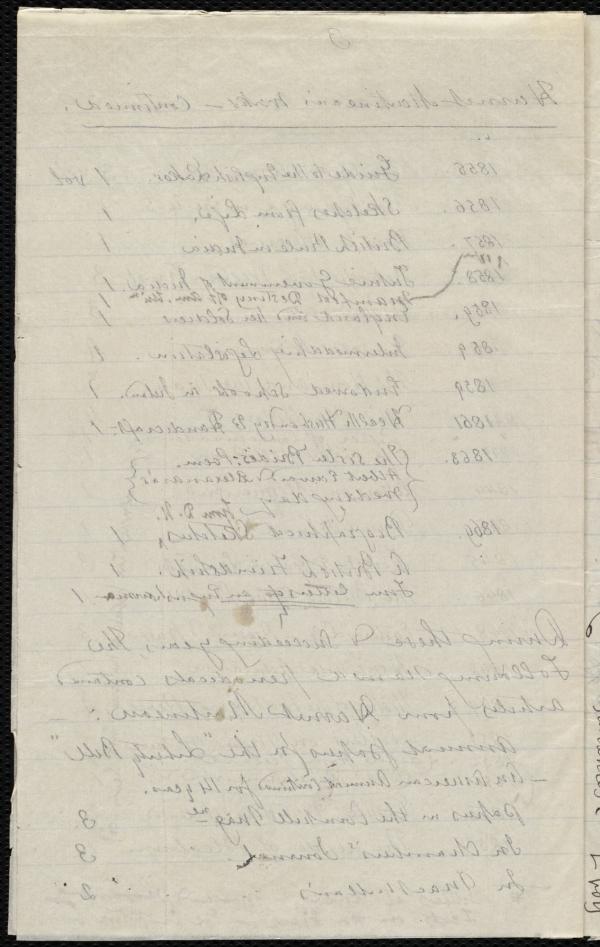 3
Harriet Martineau's Works – Continued.
1855 Guide to the English Lakes. 1 vol
1856. Sketches from Life. 1
1857. British Rule in India 1
1858. Future Government of India. 1
Manifest Destiny of Am. Union 1
1859. England and her Soldiers 1
1859 Endowed Schools in Ireld. 1
1861 Health Husbandy & Handicraft 1
1863. The Sister Brides: Poem.
Albert Edward & Alexandra's
Wedding Day
from D. N.
1869. Biographical Sketches, 1
A British Friendship. 1
Four letters
During these & succeeding years, the
Following named periodicals contained
articles from Harriet Martineau:
Annual papers for the "Liberty Bell"
– An American Annual Continued for 14 years.
papers in the Cornhill Magne 3
In Chambers' Journal. 3
In MacMillan's 2